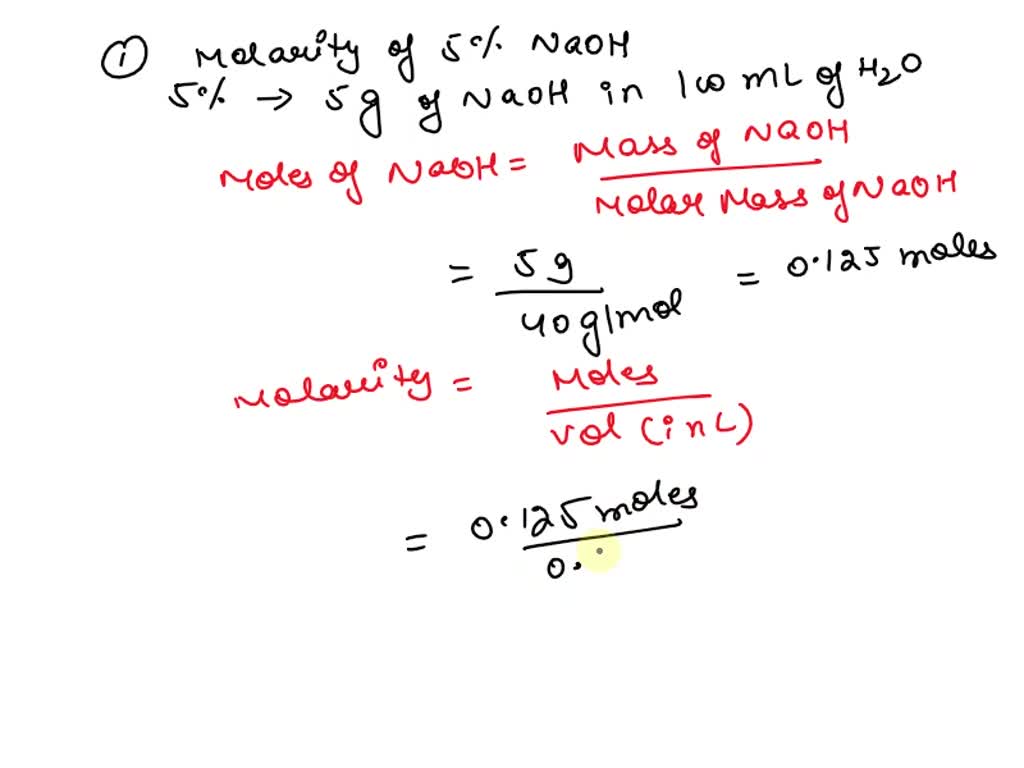 ① Molarity of 5% NaOH
5% → 5g of NaOH in 100 mL of H2O
Moles of NaOH = Mass of NaOH
Molar Mass of NaOH
= 5g = 0.125 moles
40g/mol
Molarity = Moles
vol (in L)
= 0.125 moles
0.